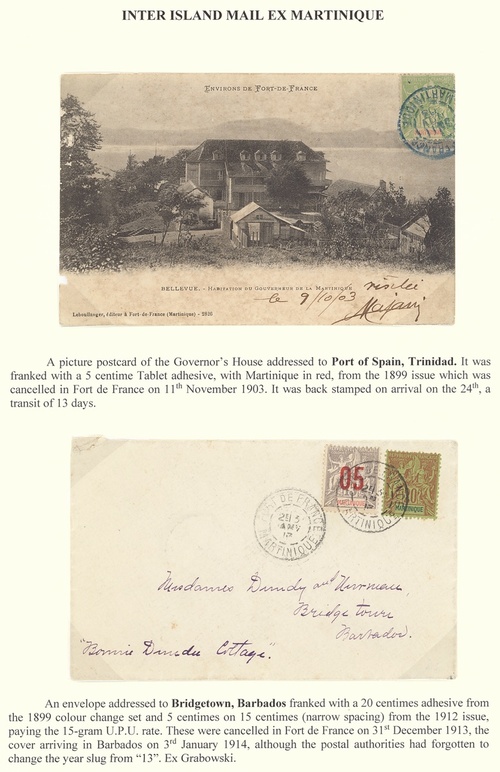 INTER ISLAND MAIL EX MARTINIQUE
ENVIRONS DE FORT-DE-FRANCE
MARTINIQUE
BELLEVUE. - HABITATION DU GOUVERNEUR DE LA MARTINIQUE
le 9/10/03
Laboullanger, éditeur à Fort-de-France (Martinique) - 2916
A picture postcard of the Governor's House addressed to Port of Spain, Trinidad. It was
franked with a 5 centime Tablet adhesive, with Martinique in red, from the 1899 issue which was
cancelled in Fort de France on 11th November 1903. It was back stamped on arrival on the 24th, a
transit of 13 days.
05
FORT DE FRANCE
MARTINIQUE
MARTINIQUE
Mesdames Dundy and
Bridgetown
Barbados.
"Bonnie Dundee Cottage".
An envelope addressed to Bridgetown, Barbados franked with a 20 centimes adhesive from
the 1899 colour change set and 5 centimes on 15 centimes (narrow spacing) from the 1912 issue,
paying the 15-gram U.P.U. rate. These were cancelled in Fort de France on 31st December 1913, the
cover arriving in Barbados on 3rd January 1914, although the postal authorities had forgotten to
change the year slug from "13". Ex Grabowski.